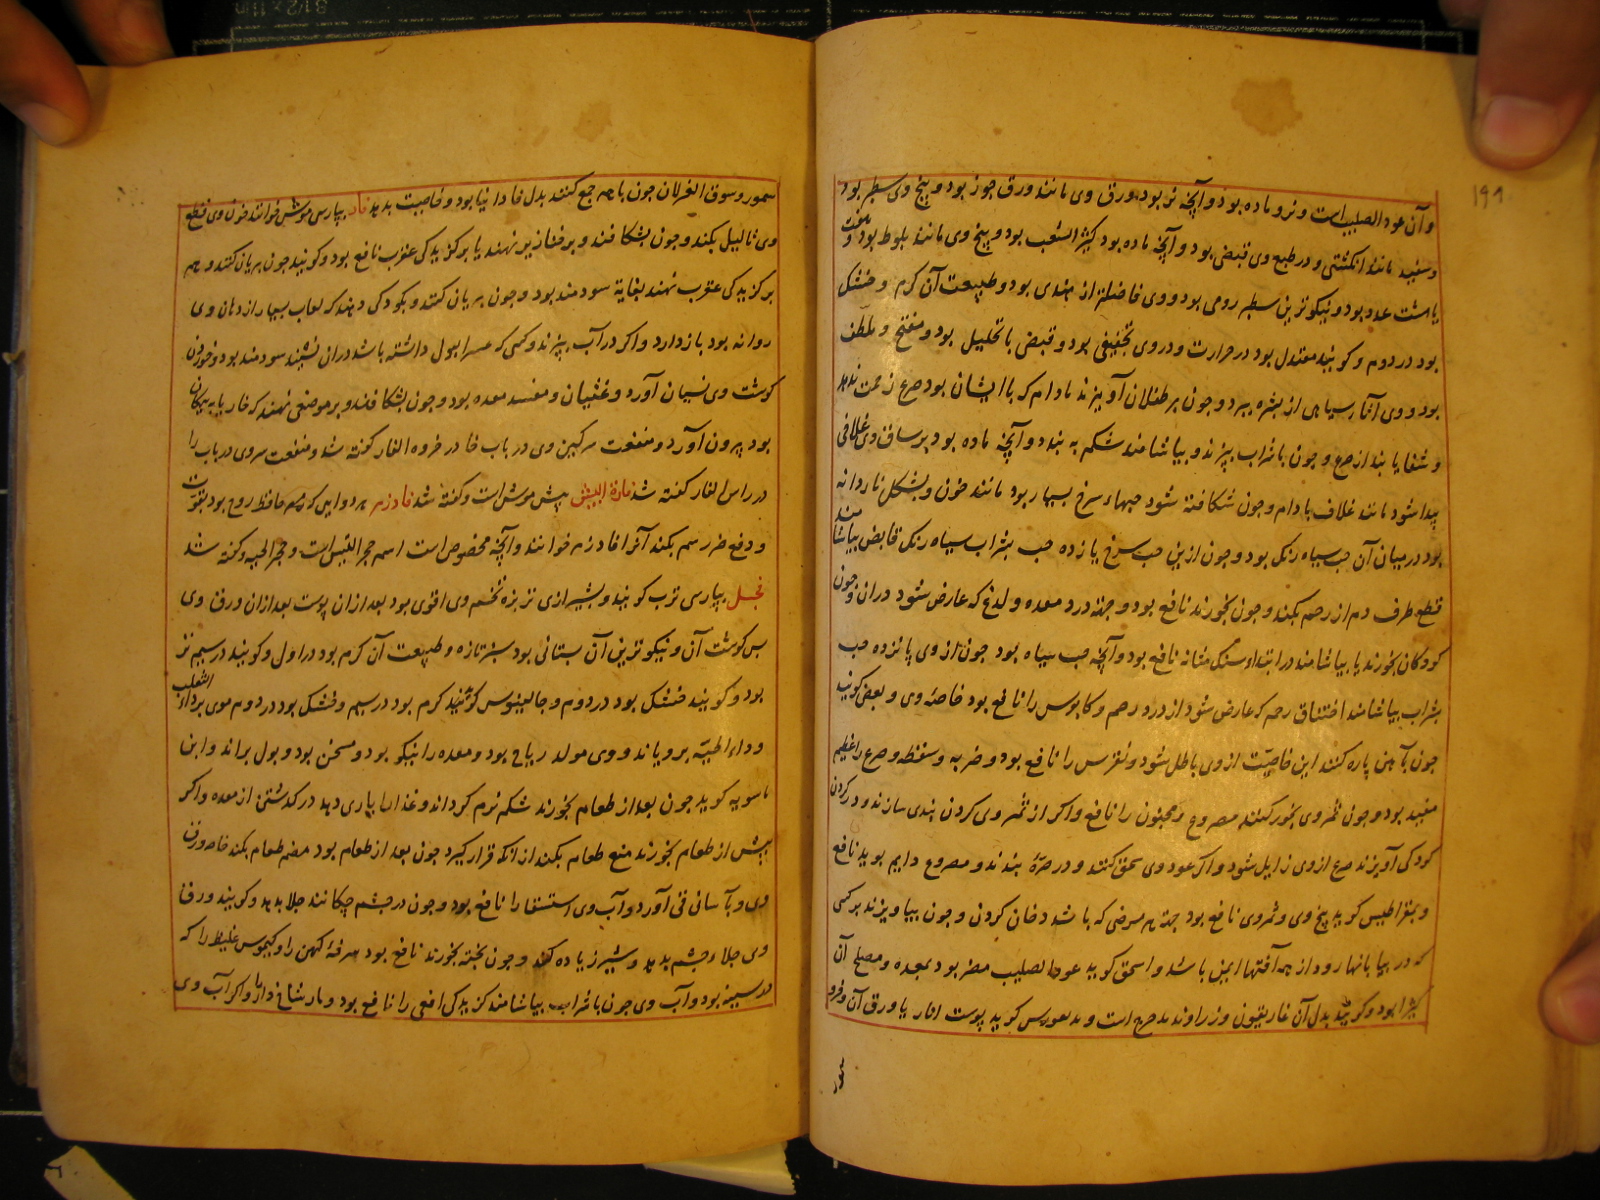 ۱۹۹
و آن عود الصلیب است و نر و ماده بود و آنچه نر بود ورق وی مانند ورق جوز بود و بیخ وی سطبر بود
و سفید مانند انکشتی و در طبع وی قبض بود و آنچه ماده بود کثیر الشعب بود و بیخ وی مانند بلوط بود و هفت
یا هشت عدد بود و نیکوترین سطبر رومی بود و وی فاضلتر از هندی بود و طبیعت آن کرم و خشک
بود در دوم و کویند معتدل بود در حرارت و در وی تجفیفی بود و قبض با تحلیل بود و مفتح و ملطف
بود و وی آثار سیاهی از بشره ببرد و چون بر طفلان آویزند مادام که با ایشان بود صرع زحمت ندهد
و شفا یابند از صرع و چون با شراب بپزند و بیاشامند شکم به بندد و آنچه ماده بود بر ساق وی غلافی
پیدا شود مانند غلاف بادام و چون شکافته شود حبهاء سرخ بسیار بود مانند خون و بشکل ناردانه
بود در میان آن حب سیاه رنک بود و چون ازین حب سرخ یازده حب بشراب سیاه رنک قابض بیاشامند
قطع طرف دم از رحم بکند و چون بخورند نافع بود و جهة درد معده و لدغ که عارض شود در آن و چون
کودکان بخورند یا بیاشامند در ابتداء سنک مثانه نافع بود و آنچه حب سیاه بود چون از وی پانزده حب
بشراب بیاشامند اختناق رحم که عارض شود از درد رحم و کابوس را نافع بود خاصهٔ وی و بعضی کویند
چون بآهن پاره کنند این خاصیّت از وی باطل شود و نقرس را نافع بود و ضربه و سقطه و صرع را عظیم
مفید بود و چون ثمر وی بخور کنند مصروع و مجنون را نافع و اکر از ثمر وی کردن بندی سازند و در کردن
کودکی آویزند صرع از وی زایل شود و اکر عود وی سحق کنند و در صرّهٔ بندند و مصروع دایم بوید نافع
و بقراطیس کوید بیخ وی و ثمر وی نافع بود جهة هر مرضی که باشد دخان کردن و چون بیاویزند بر کسی
که در بیابانها رود از همه آفتها ایمن باشد و اسحق کوید عود الصلیب مضر بود بمعده و مصلح آن
کثیرا بود و کویند بدل آن غاریقون و زراوند مدحرج است و بدیغورس کوید پوست انار یا ورق آن و فرو
سمور
سمور و سوق الغزلان چون باهم جمع کنند بدل فاوانیا بود و خاصیت بدید فار بپارسی موش خوانند خون وی قطع
وی ثالیل بکند و چون بشکافند و بر خنازیر نهند یا بر کزیدکی عقرب نافع بود و کویند چون بریان کنند و هم
بر کزیدکی عقرب نهند بغایة سودمند بود و چون بریان کنند و بکودکی دهند که لعاب بسیار از دهان وی
روانه بود بازدارد و اکر در آب بپزند و کسی که عسر البول داشته باشد در آن نشیند سودمند بود و خوردن
کوشت وی نسیان آورد و غثیان و مفسد معده بود و چون بشکافند و بر موضعی نهند که خار یا پیکان
بود بیرون آورد و منفعت سرکین وی در باب خا در خروء الفار کفته شد و منفعت سر وی در باب را
در راس الفار کفته شد فارة البیش بیش موش است و کفته شد فادزهر هر دوایی که هم حافظ روح بود بقوت
و دفع ضرر سم بکند آنرا فادزهر خوانند و آنچه مخصوص است اسم حجر التیس است و حجر الحیه و کفته شد
فجل بپارسی ترب کویند و بشیرازی تربزه تخم وی اقوی بود بعد از آن پوست بعد از آن ورق وی
پس کوشت آن و نیکوترین آن بستانی بود سبز تازه و طبیعت آن کرم بود در اول و کویند در سیم تر
بود و کویند خشک بود در دوم و جالینوس کوید کرم بود در سیم و خشک بود در دوم موی بر داء الثعلب
و داء الحیّه برویاند و وی مولد ریاح بود و معده را نیکو بود و مسخن بود و بول براند و ابن
ماسویه کوید چون بعد از طعام بخورند شکم نرم کرداند و غذا را یاری دهد در کذشتن از معده و اکر
پیش از طعام بخورند منع طعام بکند از آنکه قرار کیرد چون بعد از طعام بود هضم طعام بکند خاصه ورق
وی و بآسانی قی آورد و آب وی استسقا را نافع بود و چون در چشم چکانند جلا بدهد و کویند ورق
وی جلاء چشم بدهد و شیر زیاده کند و چون پخته بخورند نافع بود سرفهٔ کهن را و کیموس غلیظ را که
در سینه بود و آب وی چون با شراب بیاشامند کزیدکی افعی را نافع بود و مار شاخ دار و اکر آب وی